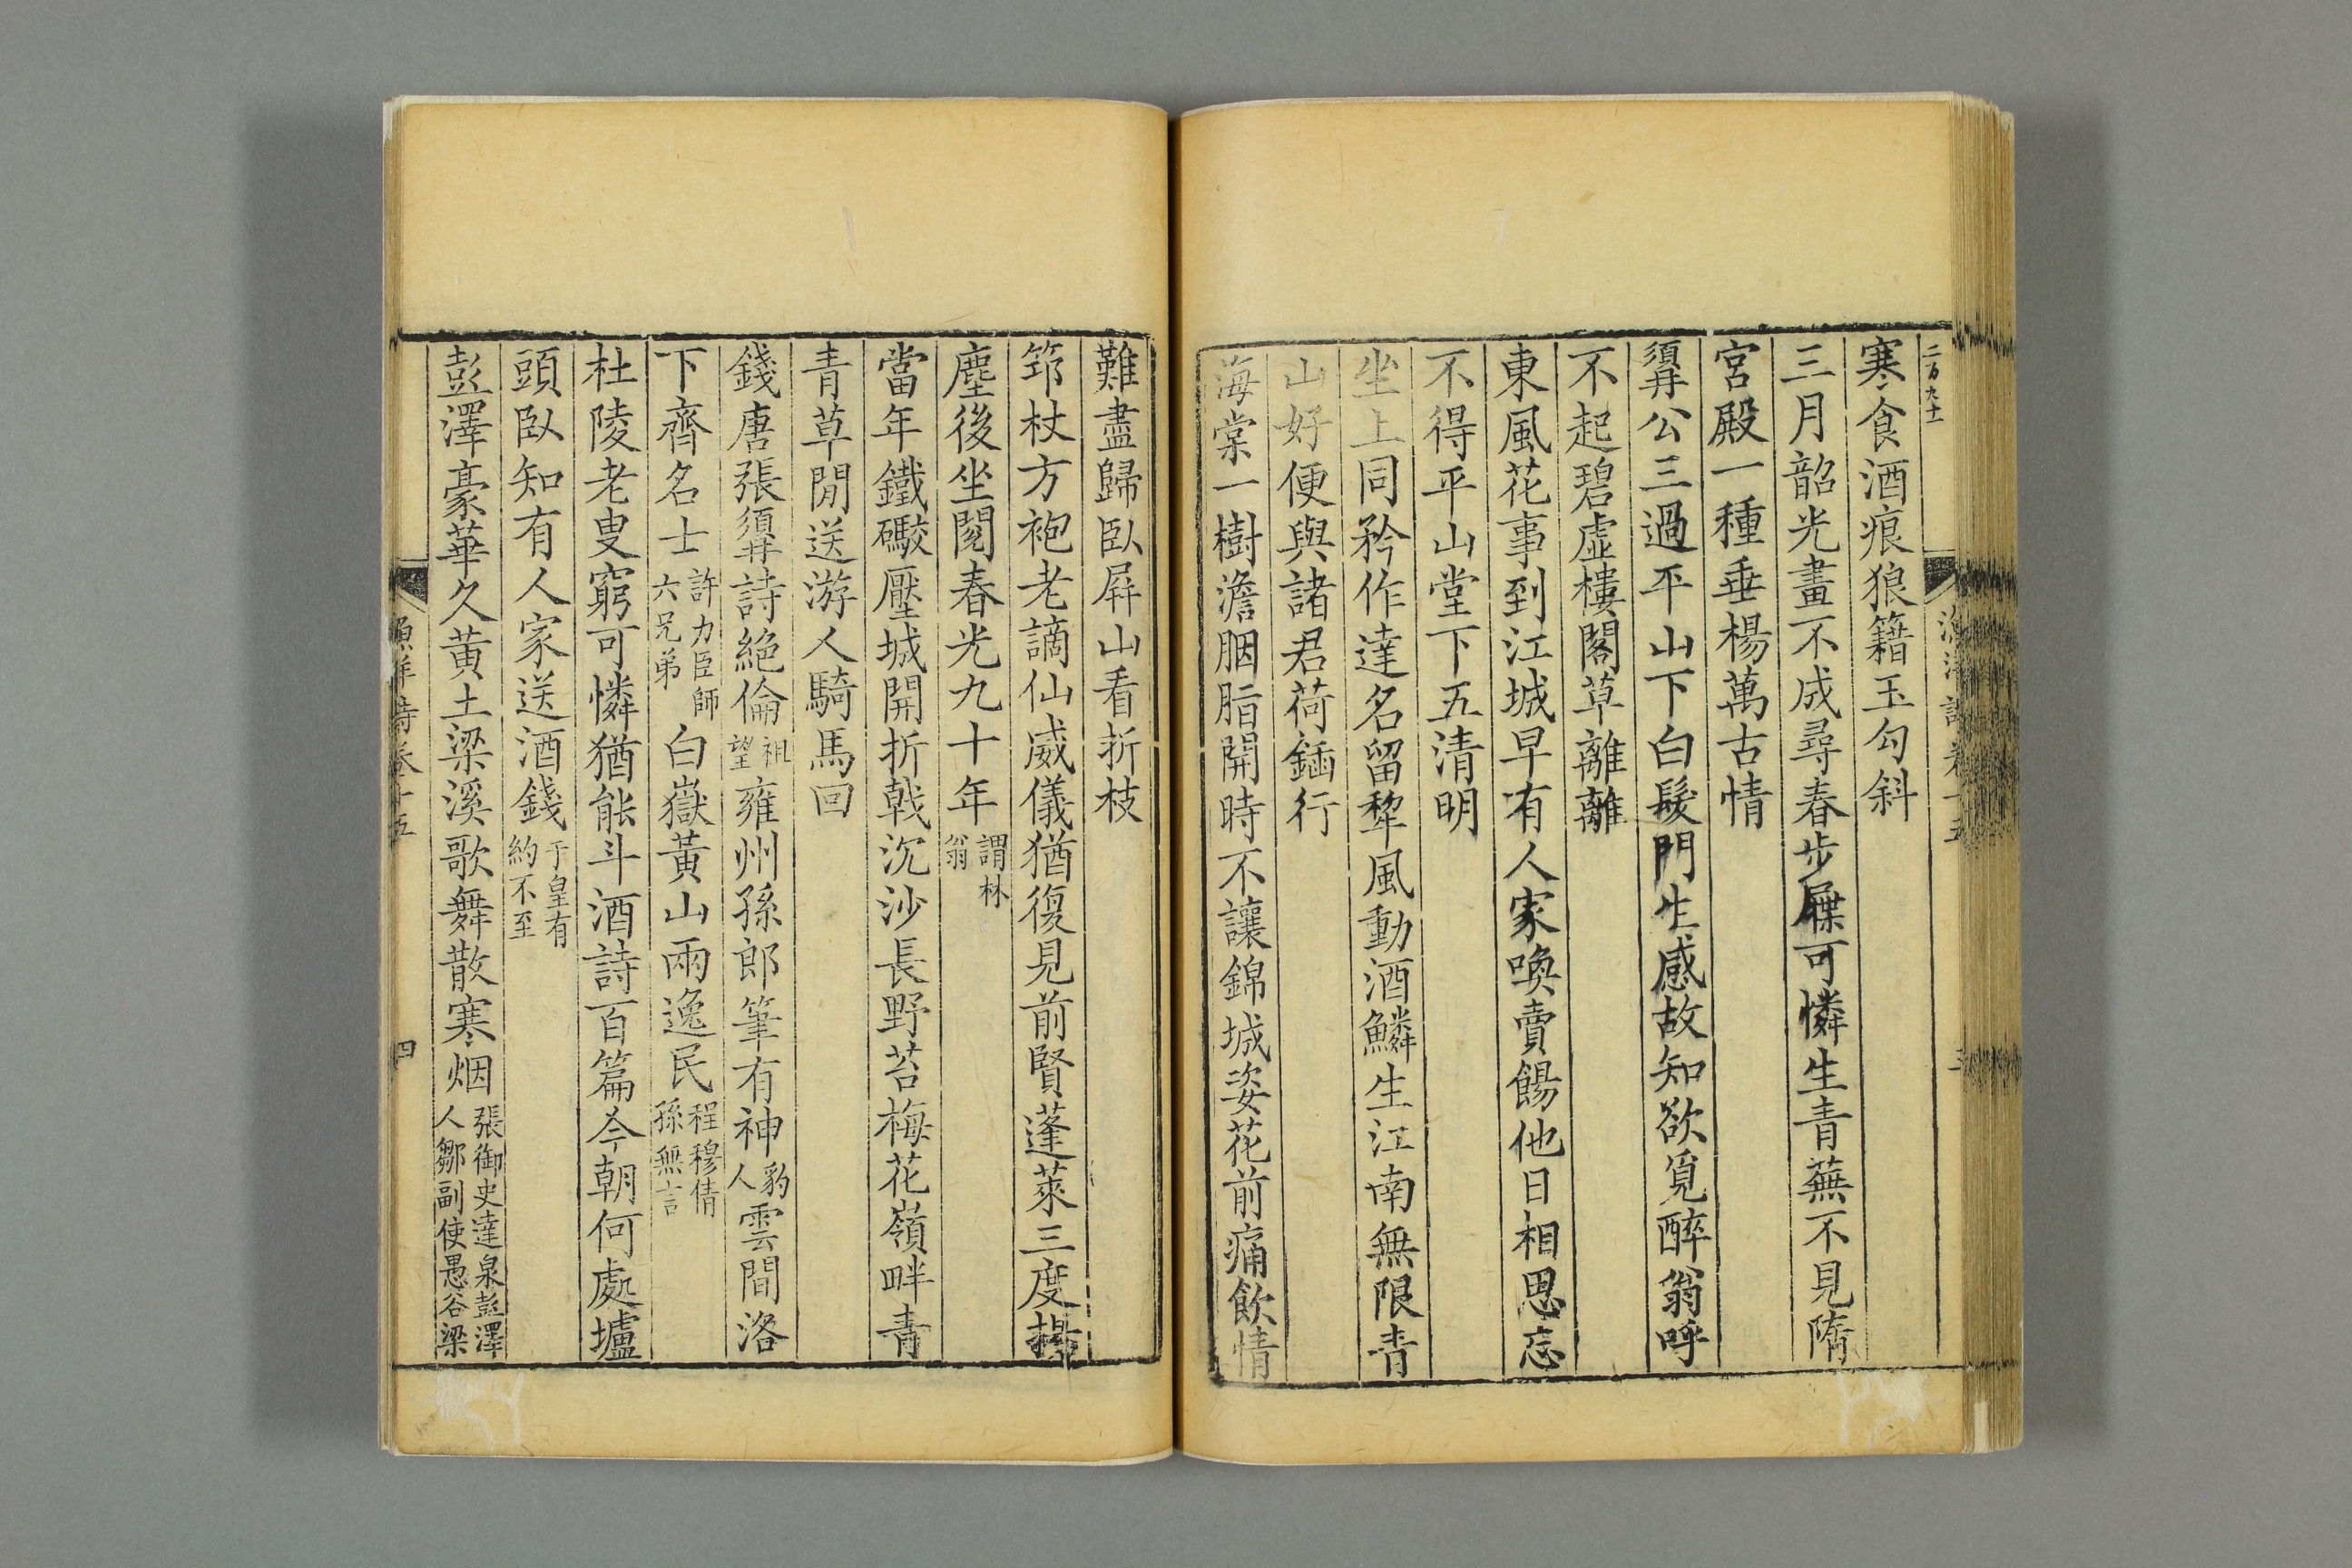 二百九十
漁洋詩卷十五
三
寒食酒痕狼籍玉勾斜
三月韶光畫不成尋春步屧可憐生青蕪不見隋
宮殿一種垂楊萬古情
㵎公三過平山下白髮門生感故知欲覓醉翁呼
不起碧虛樓閣草離離
東風花事到江城早有人家喚賣餳他日相思忘
不得平山堂下五清明
坐上同矜作達名留犂風動酒鱗生江南無限青
山好便與諸君荷鍤行
海棠一樹澹胭脂開時不讓錦城姿花前痛飲情
難盡歸臥屛山看折枝
筇杖方袍老謫仙威儀猶復見前賢蓬萊三度揚
塵後坐閱春光九十年謂林翁
當年鐵礮壓城開折戟沉沙長野苔梅花嶺畔青
青草閒送游人騎馬回
錢唐張詩絕倫祖望雍州孫郎筆有神豹人雲間洛
下齊名士許力臣師六兄弟白嶽黃山兩逸民程穆倩孫無言
杜陵老叟窮可憐猶能斗酒詩百篇今朝何處壚
頭臥知有人家送酒錢于皇有約不至
彭澤豪華久黃土梁溪歌舞散寒烟張御史達泉彭澤人鄒副使愚谷梁
漁洋詩卷十五
四